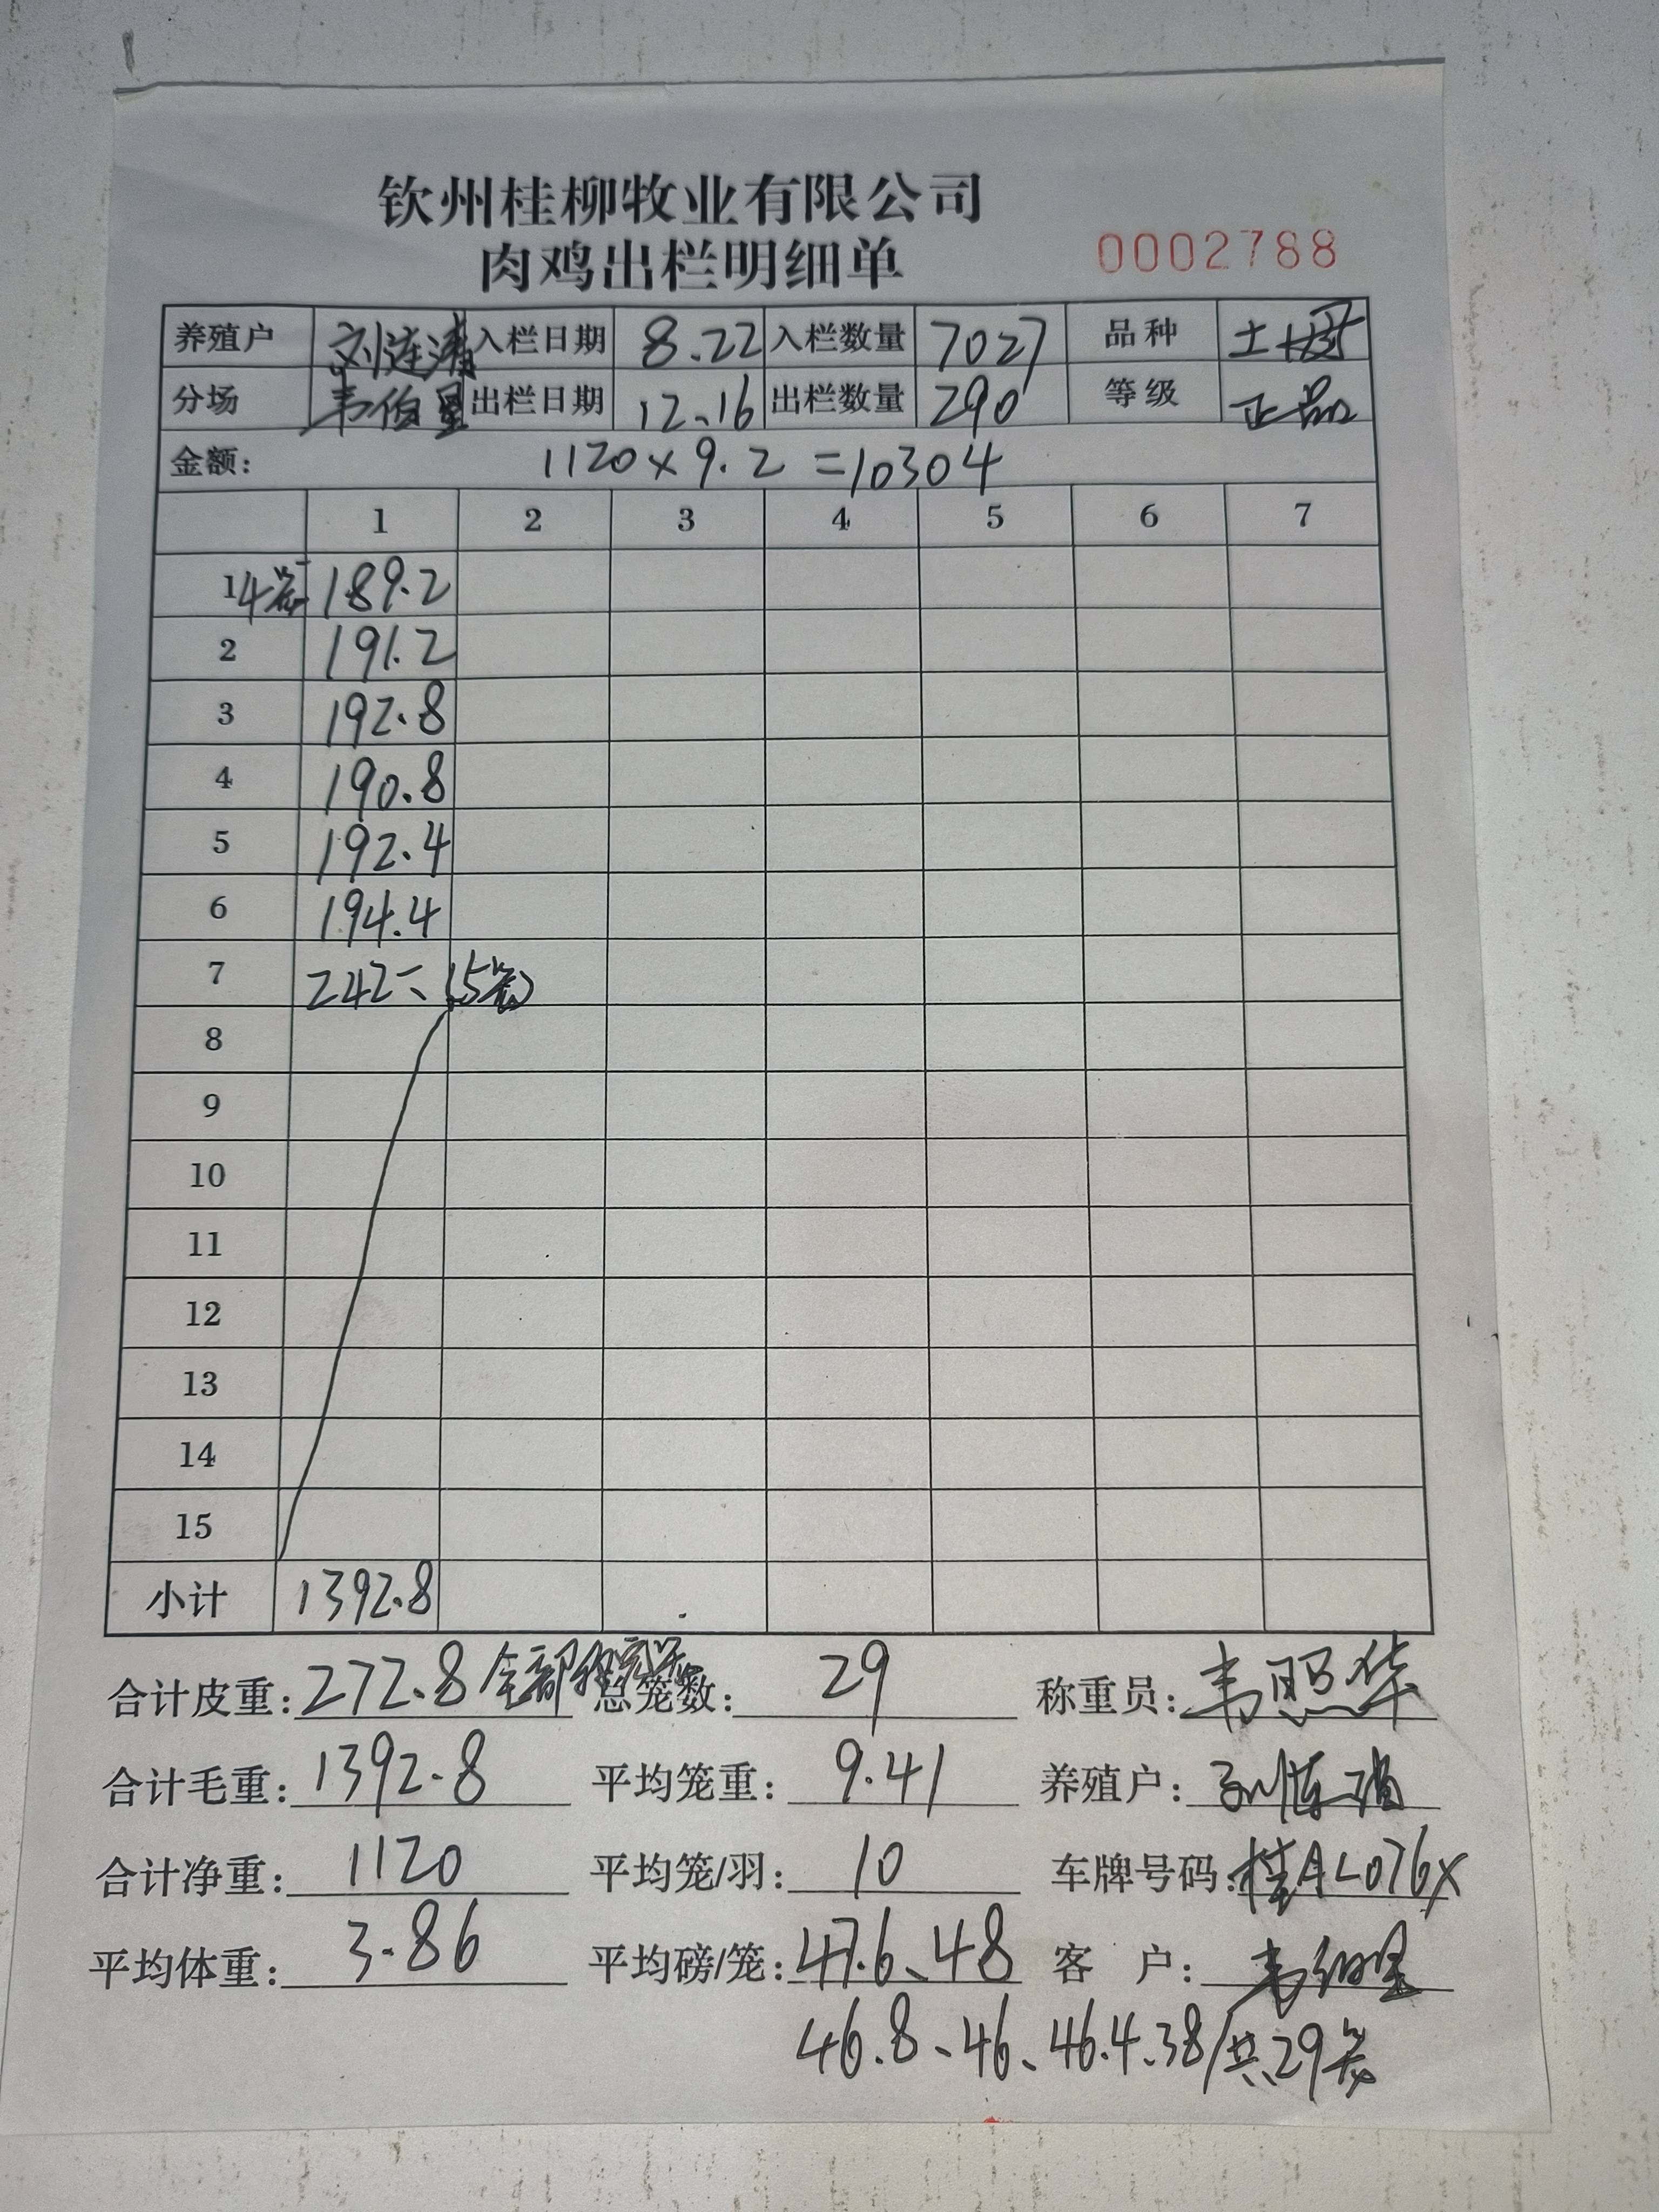 钦州桂柳牧业有限公司
肉鸡出栏明细单 0002788
养殖户 刘连清 入栏日期 8.22 入栏数量 7027 品种 土
分场 韦伯星 出栏日期 12.16 出栏数量 290 等级 正品
金额: 1120×9.2=10304
1 2 3 4 5 6 7
1 4笼 189.2
2 191.2
3 192.8
4 190.8
5 192.4
6 194.4
7 242= (5笼)
8
9
10
11
12
13
14
15
小计 1392.8
合计皮重: 272.8 全部 总笼数: 29 称重员: 韦照华
合计毛重: 1392.8 平均笼重: 9.41 养殖户:
合计净重: 1120 平均笼/羽: 10 车牌号码: 桂AL076X
平均体重: 3.86 平均磅/笼: 47.6、48 客 户: 韦伯星
46.8、46、46.4、38/共29笼